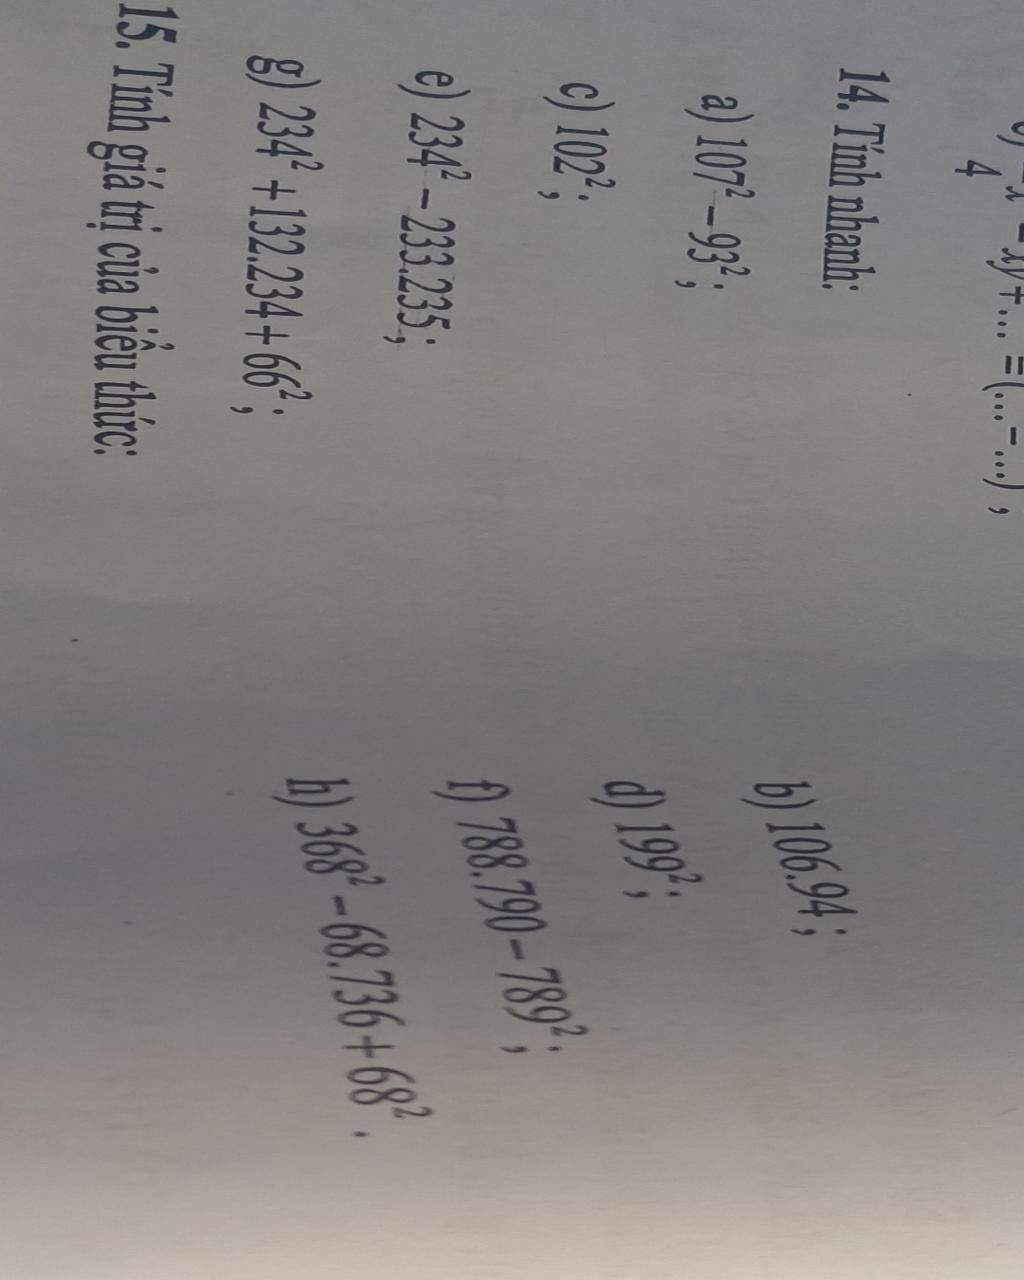 4 x² - xy + ... = (... - ...) ,
14. Tính nhanh:
a) 107² – 93²; b) 106.94;
c) 102²; d) 199²;
e) 234² – 233.235; f) 788.790 – 789²;
g) 234² + 132.234 + 66²; h) 368² – 68.736 + 68² .
15. Tính giá trị của biểu thức: